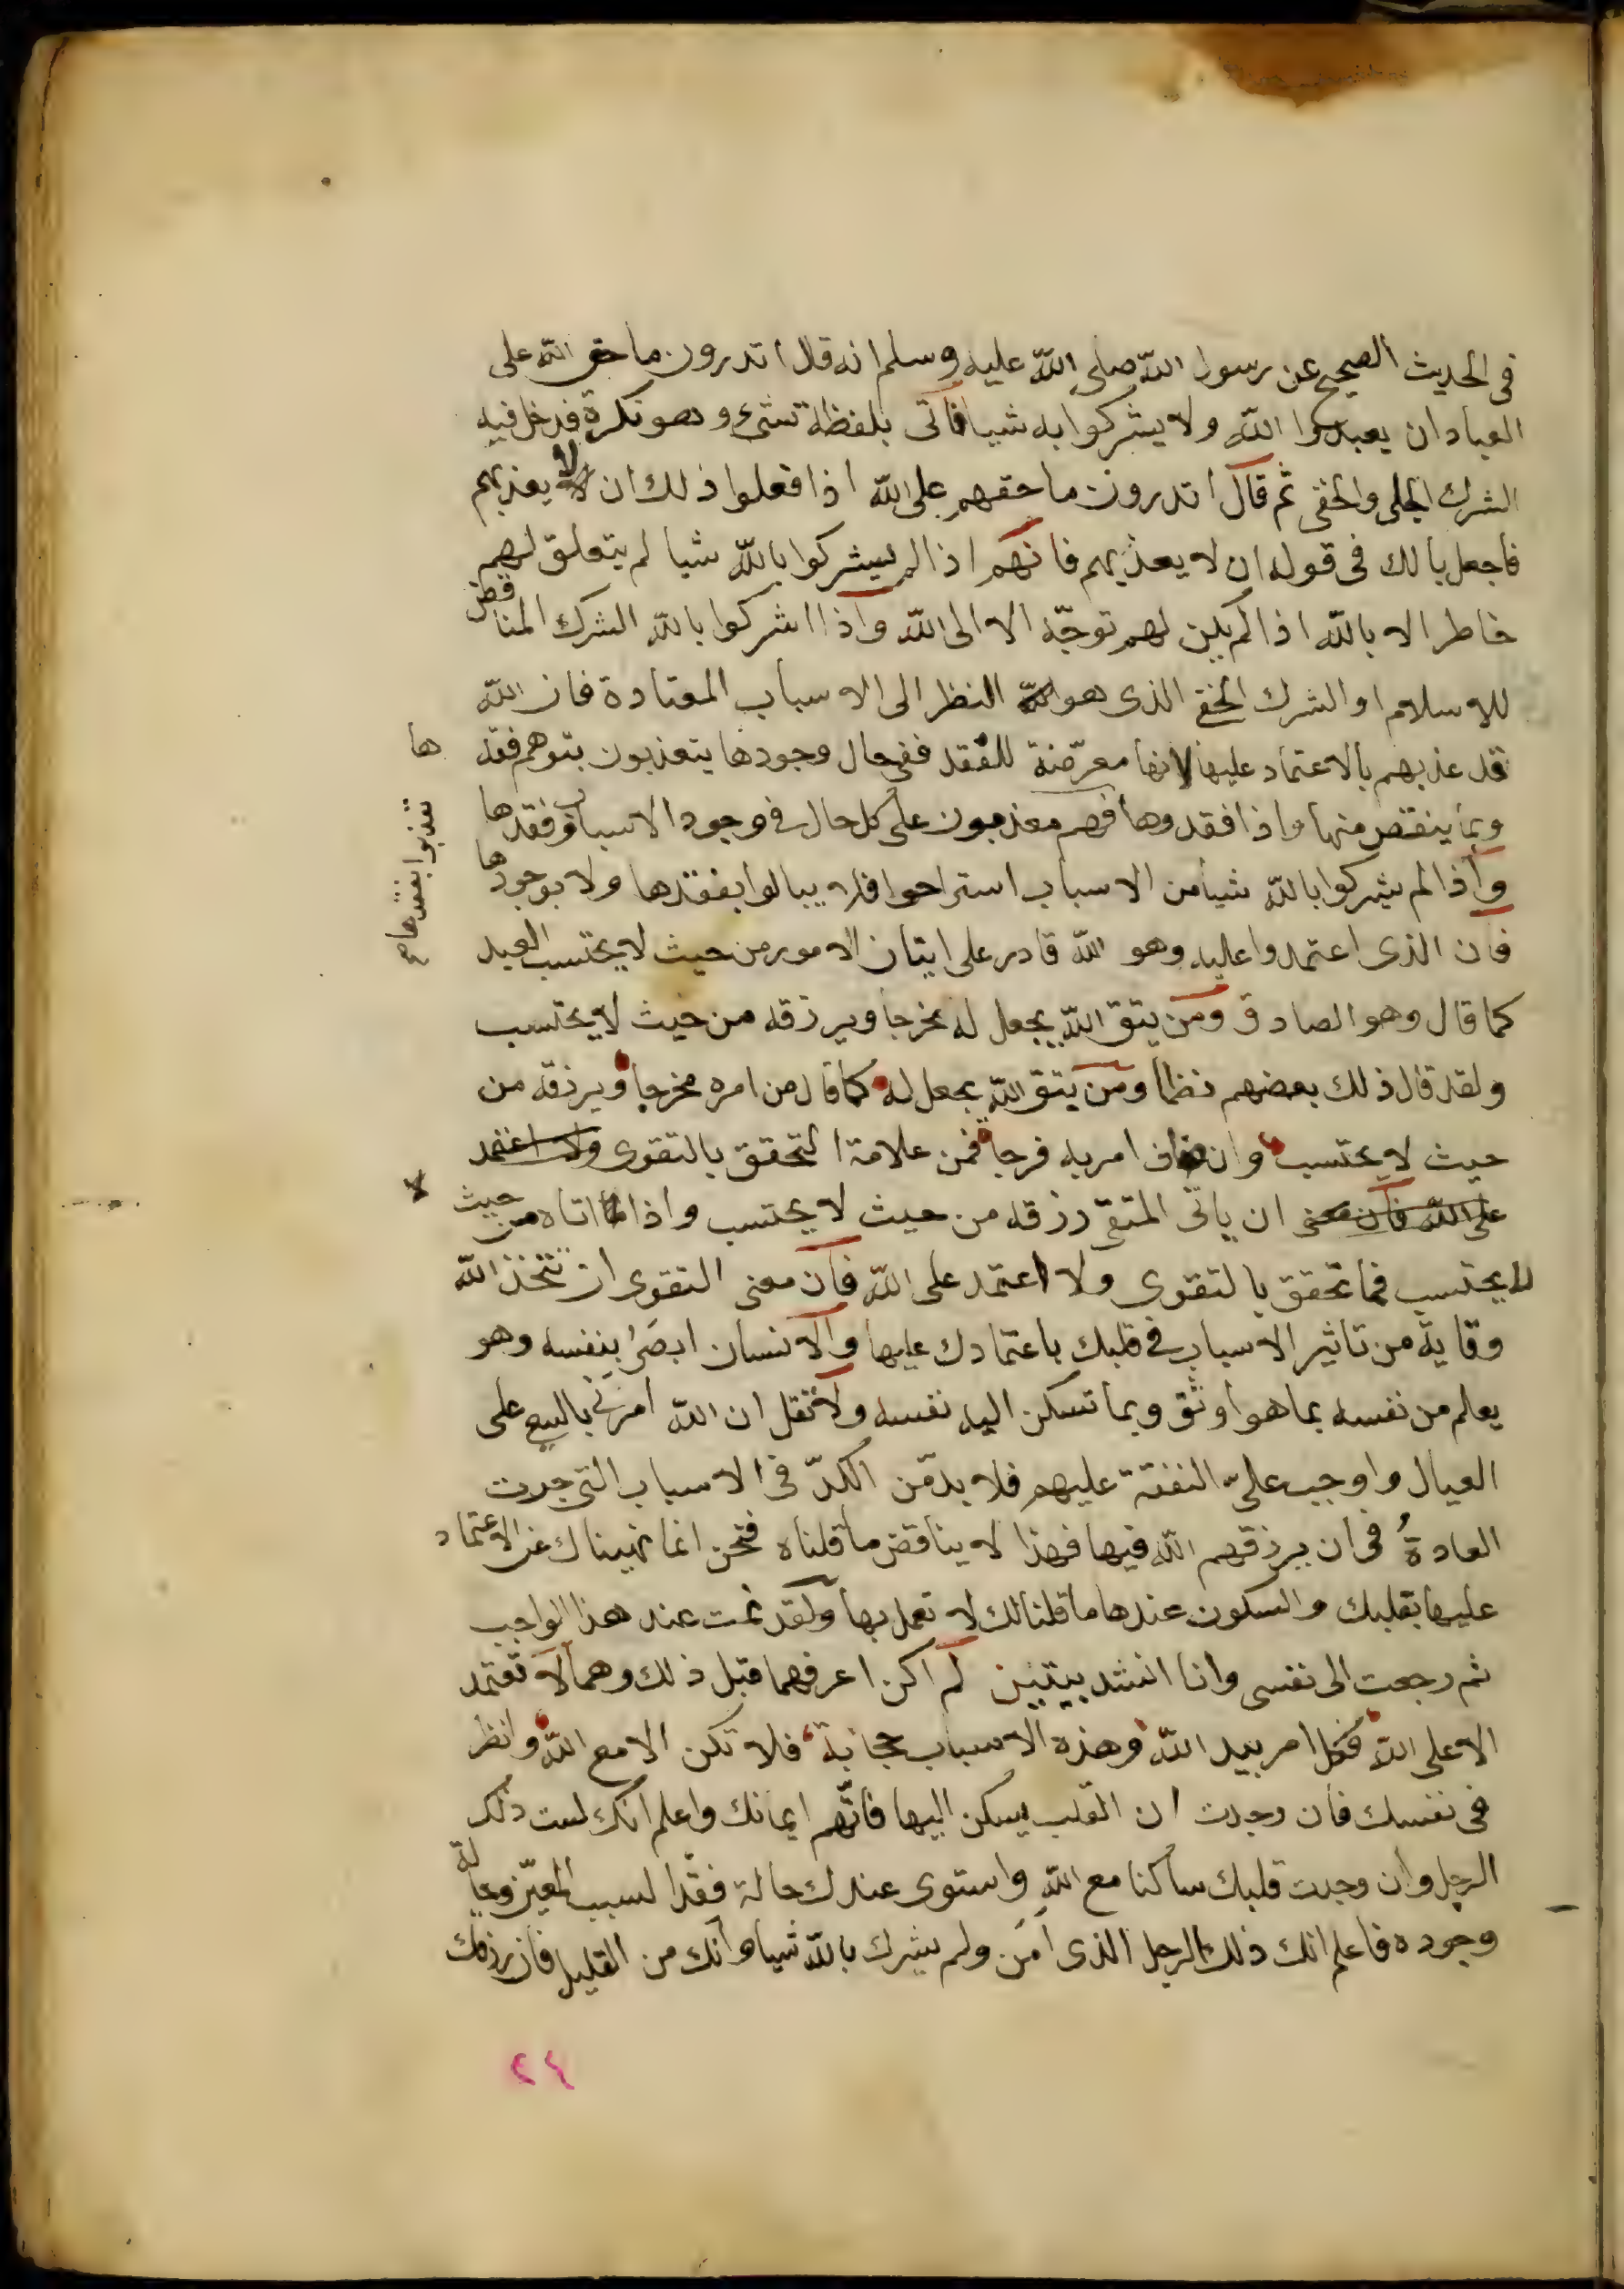 في الحديث الصحيح عن رسول الله صلى الله عليه وسلم انه قال اتدرون ما حق الله على
العباد ان يعبدوا الله ولا يشركوا به شيا فاتى بلفظة شيء وهو نكرة فدخل فيه
الشرك الجلى والخفى ثم قال اتدرون ما حقهم على الله اذا فعلوا ذلك ان لا يعذبهم
فاجعل بالك في قوله ان لا يعذبهم فانهم اذا لم يشركوا بالله شيا لم يتعلق لهم
خاطر الا بالله اذا لم يكن لهم توجّه الا الى الله واذا اشركوا بالله الشرك المناقض
للاسلام او الشرك الخفى الذى هو النظر الى الاسباب المعتادة فان الله
قد عذبهم بالاعتماد عليها لانها معرّضة للفقد ففى حال وجودها يتعذبون بتوهم فقدها
وبما ينقص منها واذا فقدوها فهم معذبون على كل حال في وجود الاسباب وفقدها
تعذبوا بفقدها صح
واذا لم يشركوا بالله شيأ من الاسباب استراحوا فلا يبالوا بفقدها ولا بوجودها
فان الذى اعتمدوا عليه وهو الله قادر على اتيان الامور من حيث لا يحتسب العبد
كما قال وهو الصادق ومن يتق الله يجعل له مخرجا ويرزقه من حيث لا يحتسب
ولقد قال ذلك بعضهم نظما ومن يتق الله يجعل له كما قال من امره مخرجا ويرزقه من
حيث لا يحتسب وان ضاق امر به فرجا فمن علامة التحقق بالتقوى ولا اعتمد
على الله فان معنى ان ياتى المتقى رزقه من حيث لا يحتسب واذا اتاه من حيث
لا يحتسب فما تحقق بالتقوى ولا اعتمد على الله فان معنى التقوى ان تتخذ الله
وقاية من تاثير الاسباب في قلبك باعتمادك عليها والانسان ابصر بنفسه وهو
يعلم من نفسه بما هو اوثق وبما تسكن اليه نفسه ولا تقل ان الله امرنى بالسعى على
العيال واوجب علىّ النفقة عليهم فلا بدّ من الكدّ فى الاسباب التى جرت
العادةُ فى ان يرزقهم الله فيها فهذا لا يناقض ما قلناه فنحن انما نهيناك عن الاعتماد
عليها بقلبك والسكون عندها ما قلنا لك لا تعمل بها ولقد نمت عند هذا الواجب
ثم رجعت الى نفسى وانا انشد بيتين لم اكن اعرفهما قبل ذلك وهما لا تعتمد
الا على الله فكل امر بيد الله وهذه الاسباب حجابة فلا تكن الا مع الله وانظر
فى نفسك فان وجدت ان القلب يسكن اليها فاتّهم ايمانك واعلم انك لست ذلك
الرجل وان وجدت قلبك ساكنا مع الله واستوى عندك حالة فقد السبب المعيّن وحالة
وجوده فاعلم انك ذلك الرجل الذى آمن ولم يشرك بالله شيا وانك من القليل فان رزقك
٢٤